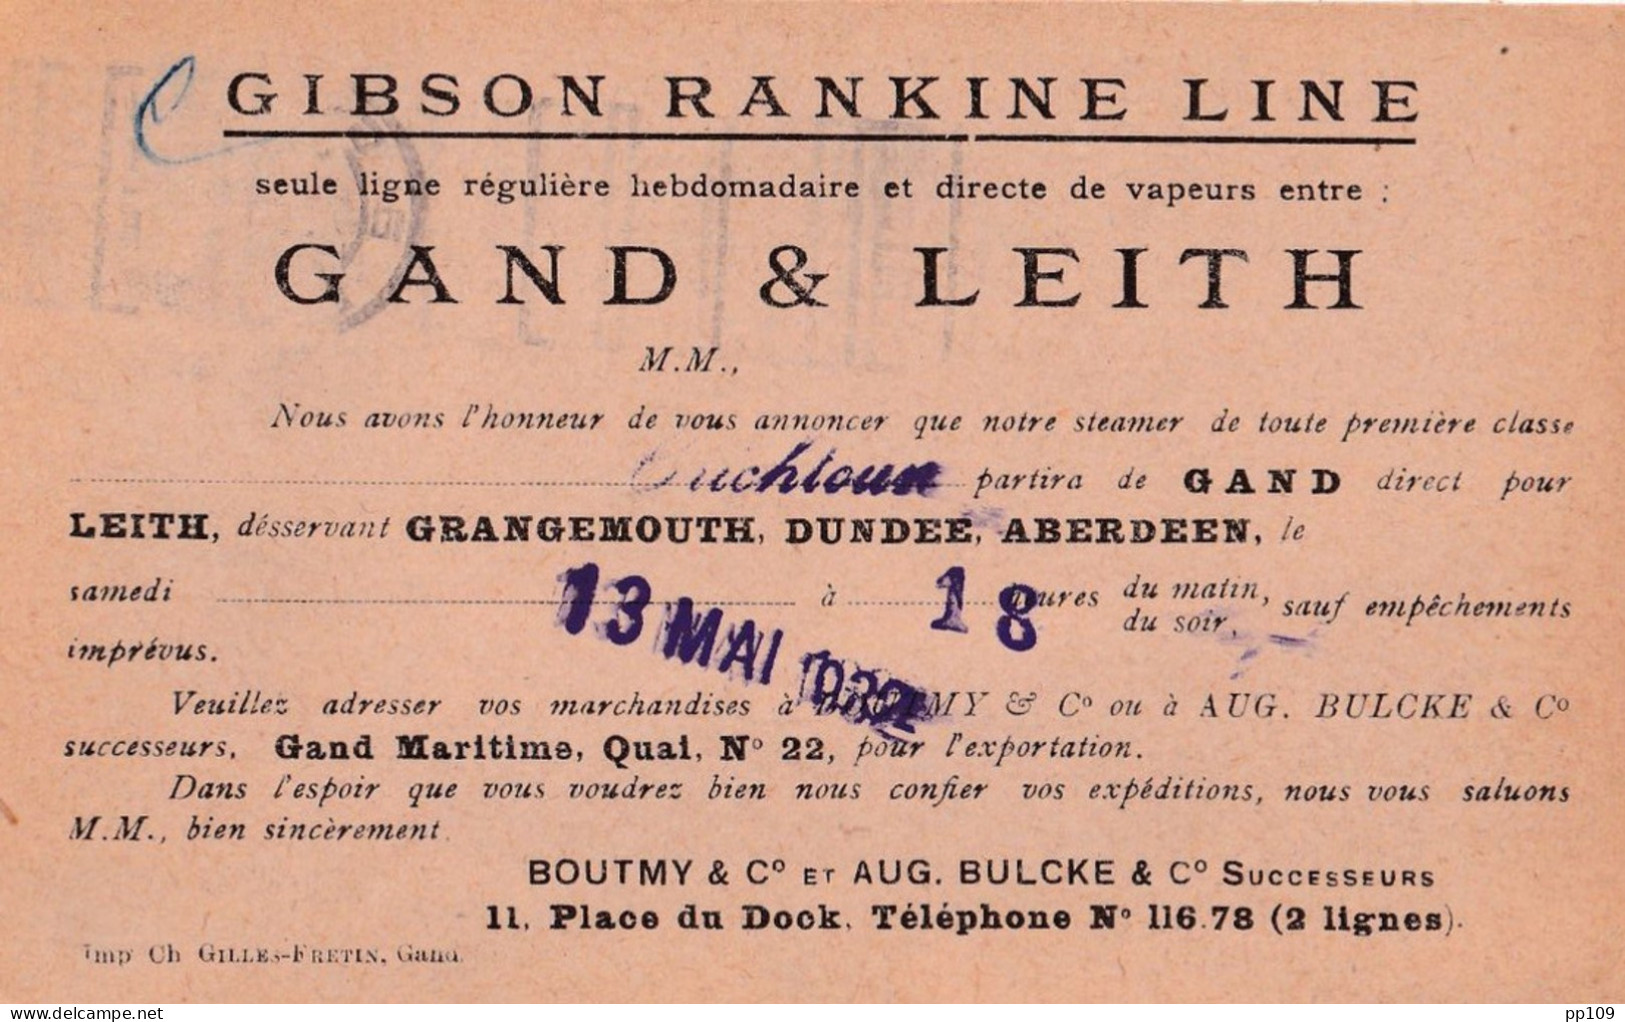 GIBSON RANKINE LINE
seule ligne régulière hebdomadaire et directe de vapeurs entre :
GAND & LEITH
M.M.,
Nous avons l'honneur de vous annoncer que notre steamer de toute première classe
partira de GAND direct pour
LEITH, désservant GRANGEMOUTH, DUNDEE, ABERDEEN, le
samedi 13 MAI à 18 heures du matin, du soir, sauf empêchements
imprévus.
Veuillez adresser vos marchandises à BOUTMY & Cº ou à AUG. BULCKE & Cº
successeurs, Gand Maritime, Quai, Nº 22, pour l'exportation.
Dans l'espoir que vous voudrez bien nous confier vos expéditions, nous vous saluons
M.M., bien sincèrement.
BOUTMY & Cº ET AUG. BULCKE & Cº SUCCESSEURS
11, Place du Dock, Téléphone Nº 116.78 (2 lignes).
Imp Ch GILLES-FRETIN, Gand.
delcampe.net
pp109